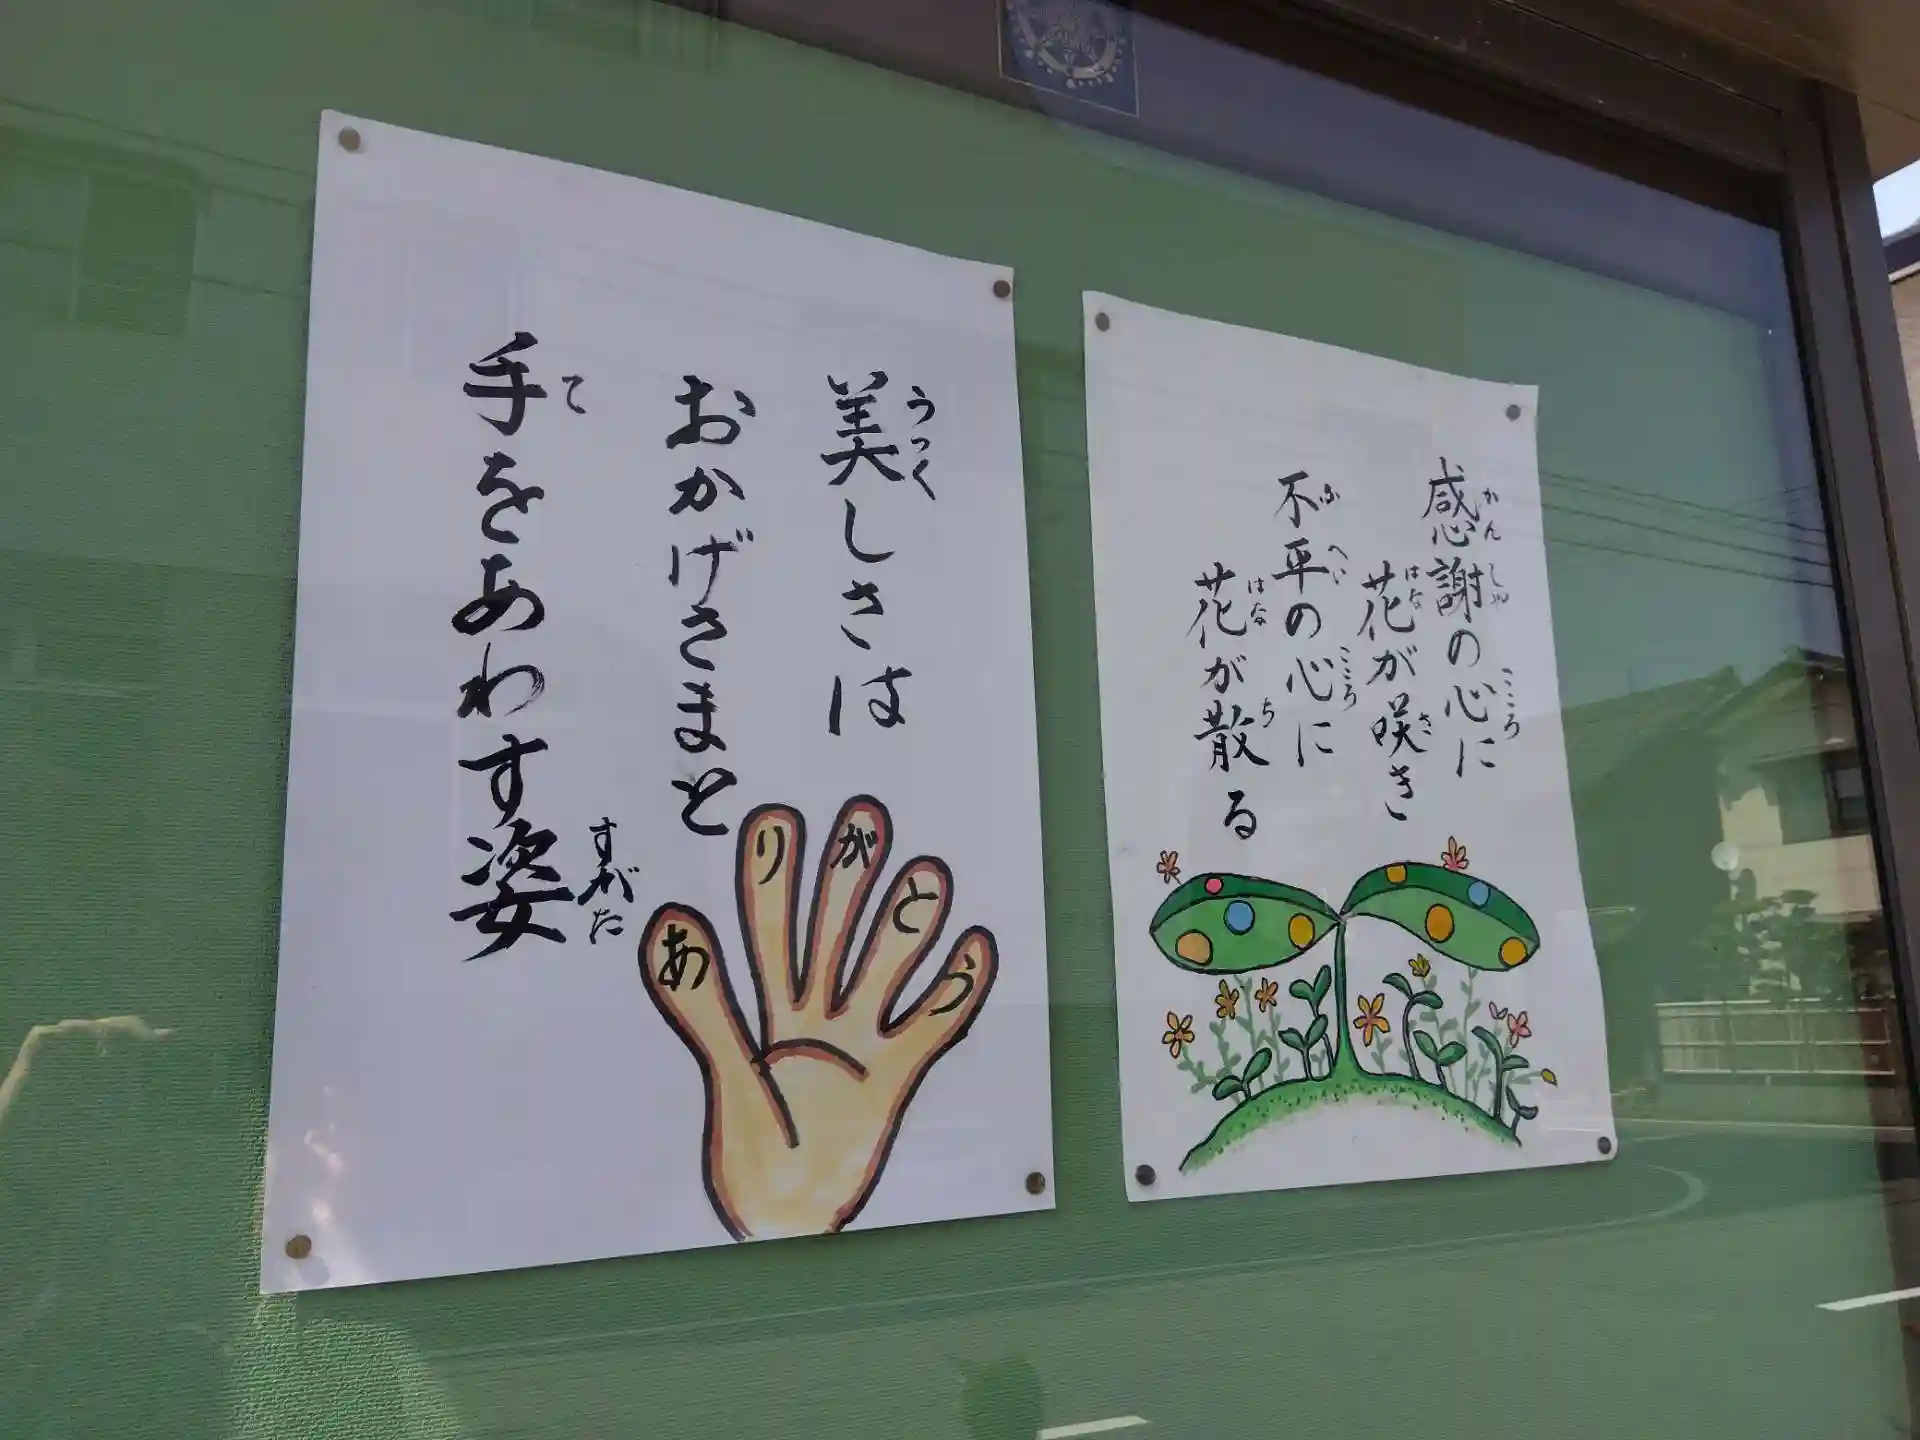 美しさは
うつく
おかげさまと
手をあわす姿
て
すがた
ありがとう
感謝の心に
かんしゃ
こころ
花が咲き
はな
さ
不平の心に
ふへい
こころ
花が散る
はな
ち